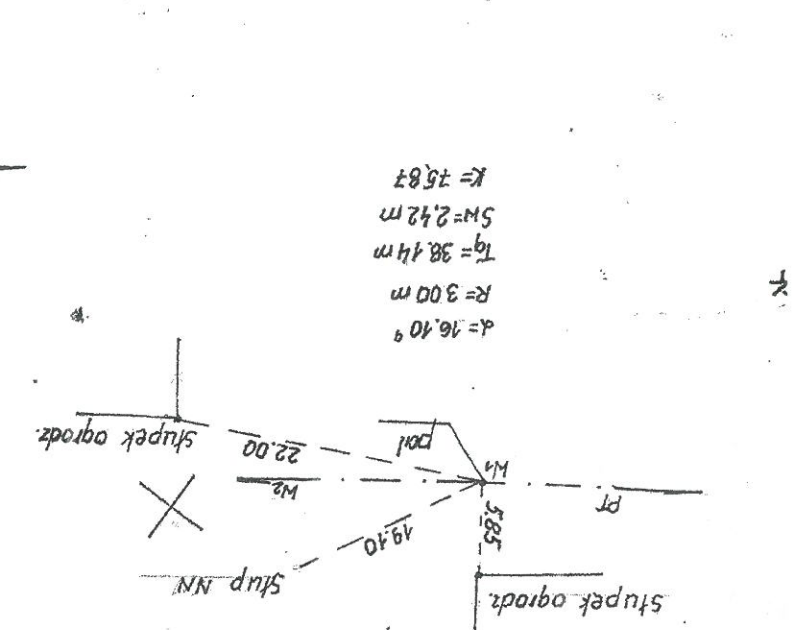 Słupek ogrodz.
Słup NN
5.85
19.10
PT
W1
W2
22.00
pal
Słupek ogrodz.
α= 16.10 g
R= 3.00 m
Tg= 38.14 m
Sw=2,42 m
K= 75,87